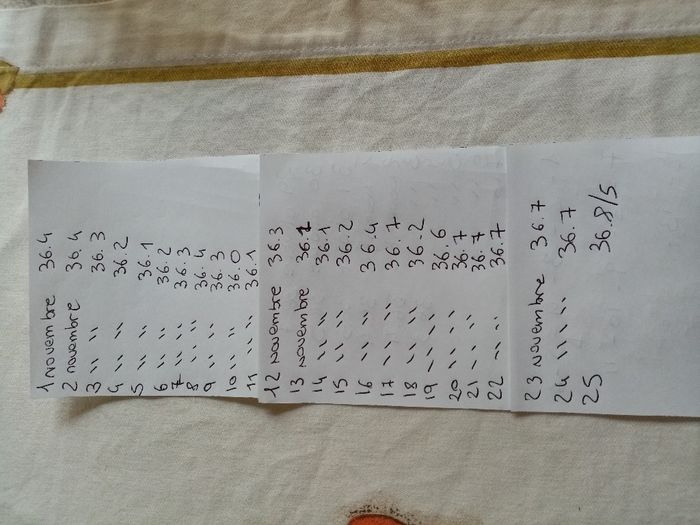 1 novembre 36.4
2 novembre 36.4
3 ,, ,, 36.3
4 ,, ,, 36.2
5 ,, ,, 36.1
6 ,, ,, 36.2
7 ,, ,, 36.3
8 ,, ,, 36.4
9 ,, ,, 36.3
10 ,, ,, 36.0
11 ,, ,, 36.1
12 novembre 36.3
13 novembre 36.1
14 ,, ,, 36.1
15 ,, ,, 36.2
16 ,, ,, 36.4
17 ,, ,, 36.7
18 ,, ,, 36.2
19 ,, ,, 36.6
20 ,, ,, 36.7
21 ,, ,, 36.7
22 ,, ,, 36.7
23 novembre 36.7
24 ,, ,, ,, 36.7
25 36.8/5